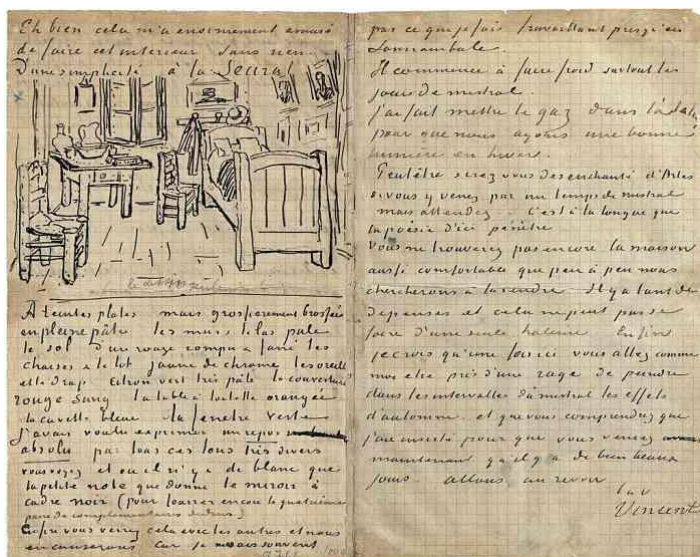 Eh bien cela m'a enormement amusé
de faire cet interieur sans rien
D'une simplicité à la Seurat
A teintes plates mais grossierement brossées
en pleine pâte les murs lilas pale
le sol d'un rouge rompu & fané les
chaises & le lit jaune de chrome les oreillers
et le drap citron vert très pâle la couverture
rouge sang la table à toilette orangée
la cuvette bleue la fenetre verte
J'avais voulu exprimer un repos
absolu par tous ces tons très divers
vous voyez et ou il n'y a de blanc que
la petite note que donne le miroir à
cadre noir (pour fourrer encore la quatrième
paire de complementaires dedans)
Enfin vous verrez cela avec les autres et nous
en causerons car je ne sais souvent
pas ce que je fais travaillant presqu'en
somnambule.
Il commence à faire froid surtout les
jours de mistral.
J'ai fait mettre le gaz dans l'atelier
pour que nous ayons une bonne
lumière en hiver.
Peutêtre serez vous desenchanté d'Arles
si vous y venez par un temps de mistral
mais attendez .. C'est à la longue que
la poésie d'ici pénètre
Vous ne trouverez pas encore la maison
aussi comfortable que peu à peu nous
chercherons à la rendre. Il y a tant de
depenses et cela ne peut pas se
faire d'une seule haleine. Enfin
je crois qu'une fois ici vous allez comme
moi etre pris d'une rage de peindre
dans les intervalles du mistral les effets
d'automne. et que vous comprendrez que
j'ai insisté pour que vous veniez
maintenant qu'il y a de bien beaux
jours allons au revoir
t.à v.
Vincent